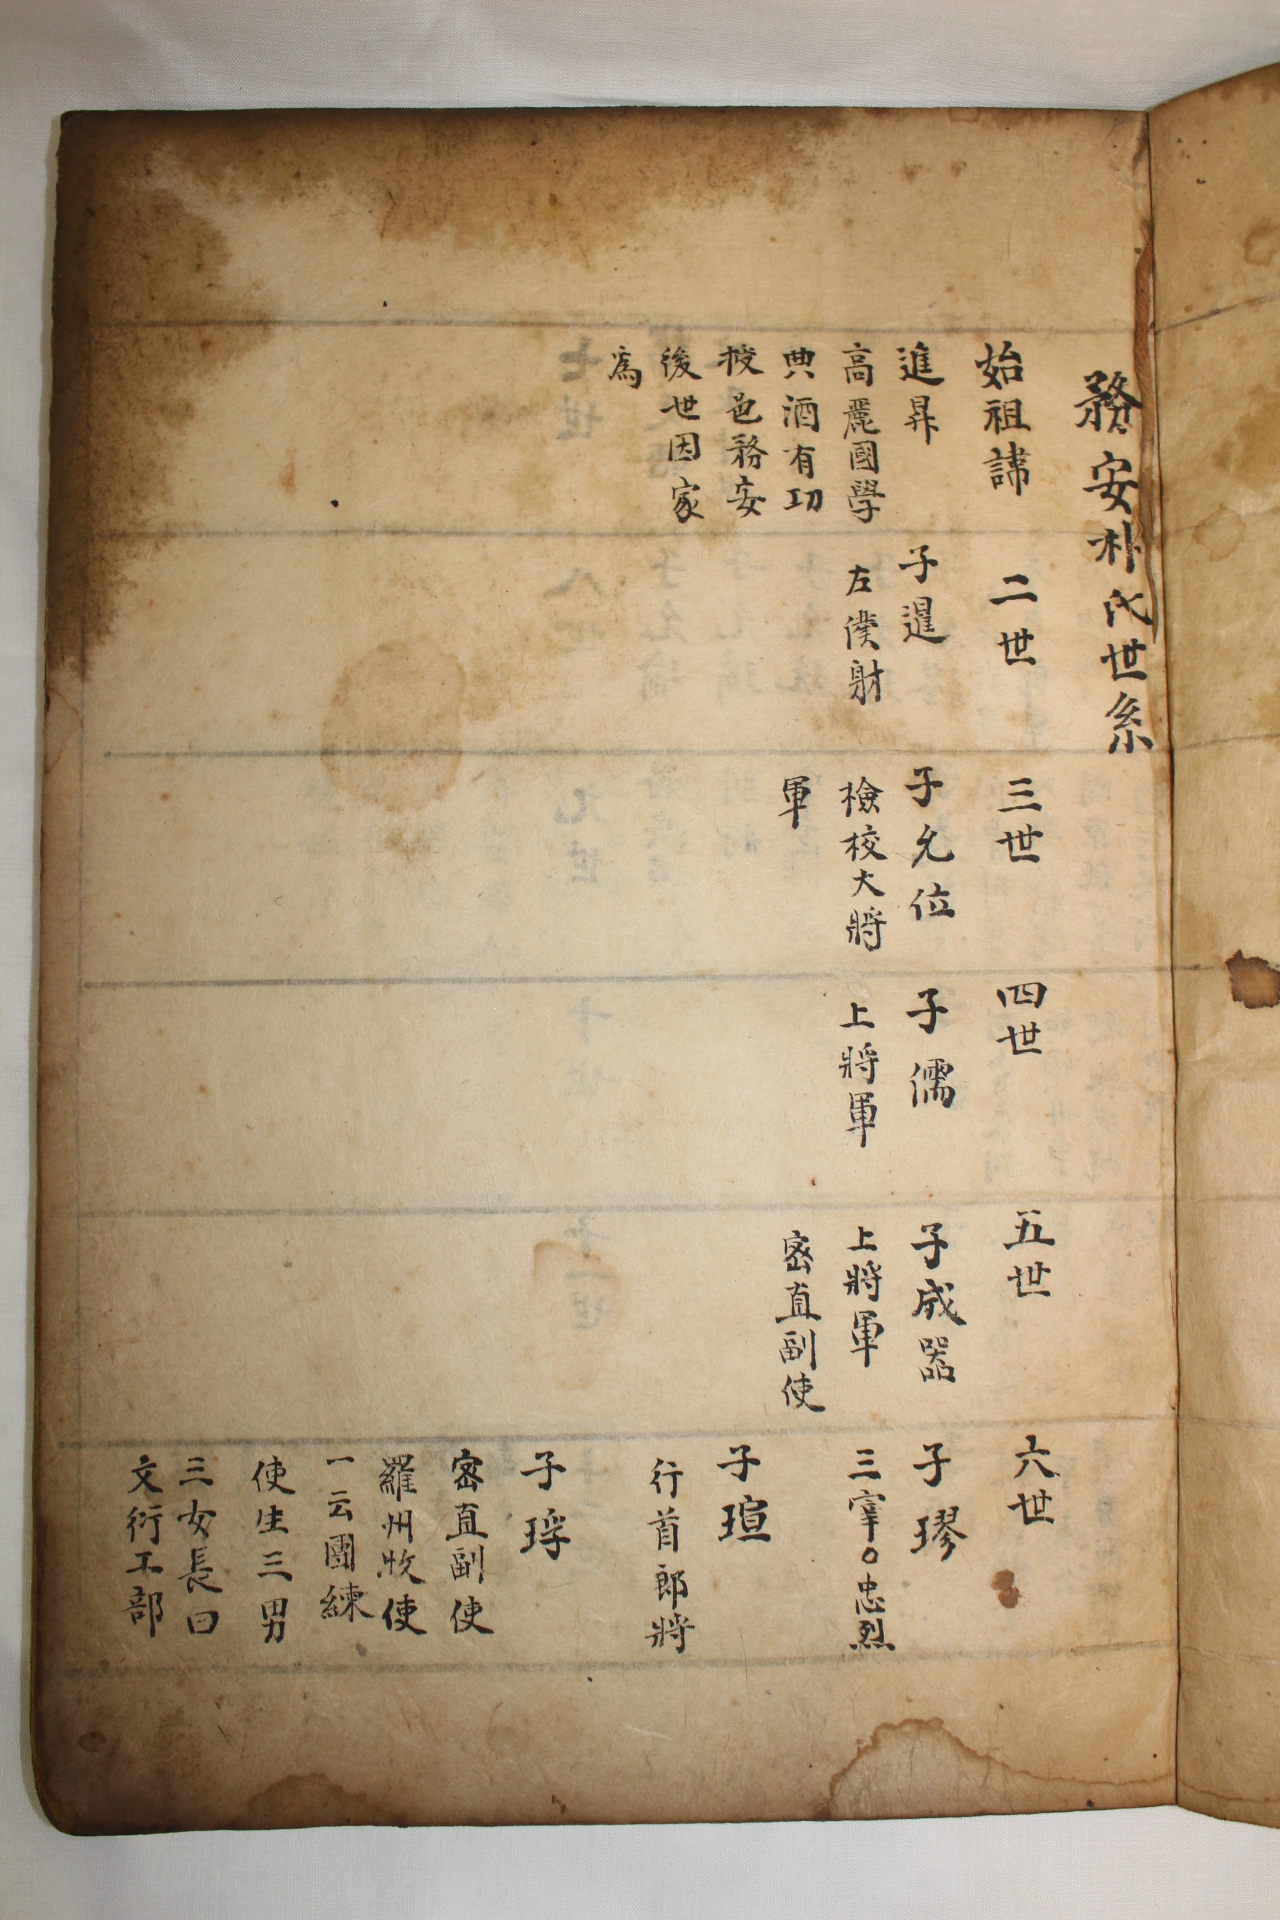 務安朴氏世系
始祖諱
進昇
高麗國學
典酒有功
投邑務安
後世因家
焉
二世
子暹
左僕射
三世
子允位
檢校大將
軍
四世
子儒
上將軍
五世
子成器
上將軍
密直副使
六世
子璆
三宰○忠烈
子瑄
行首郎將
子琈
密直副使
羅州牧使
一云團練
使生三男
三女長曰
文衍工部